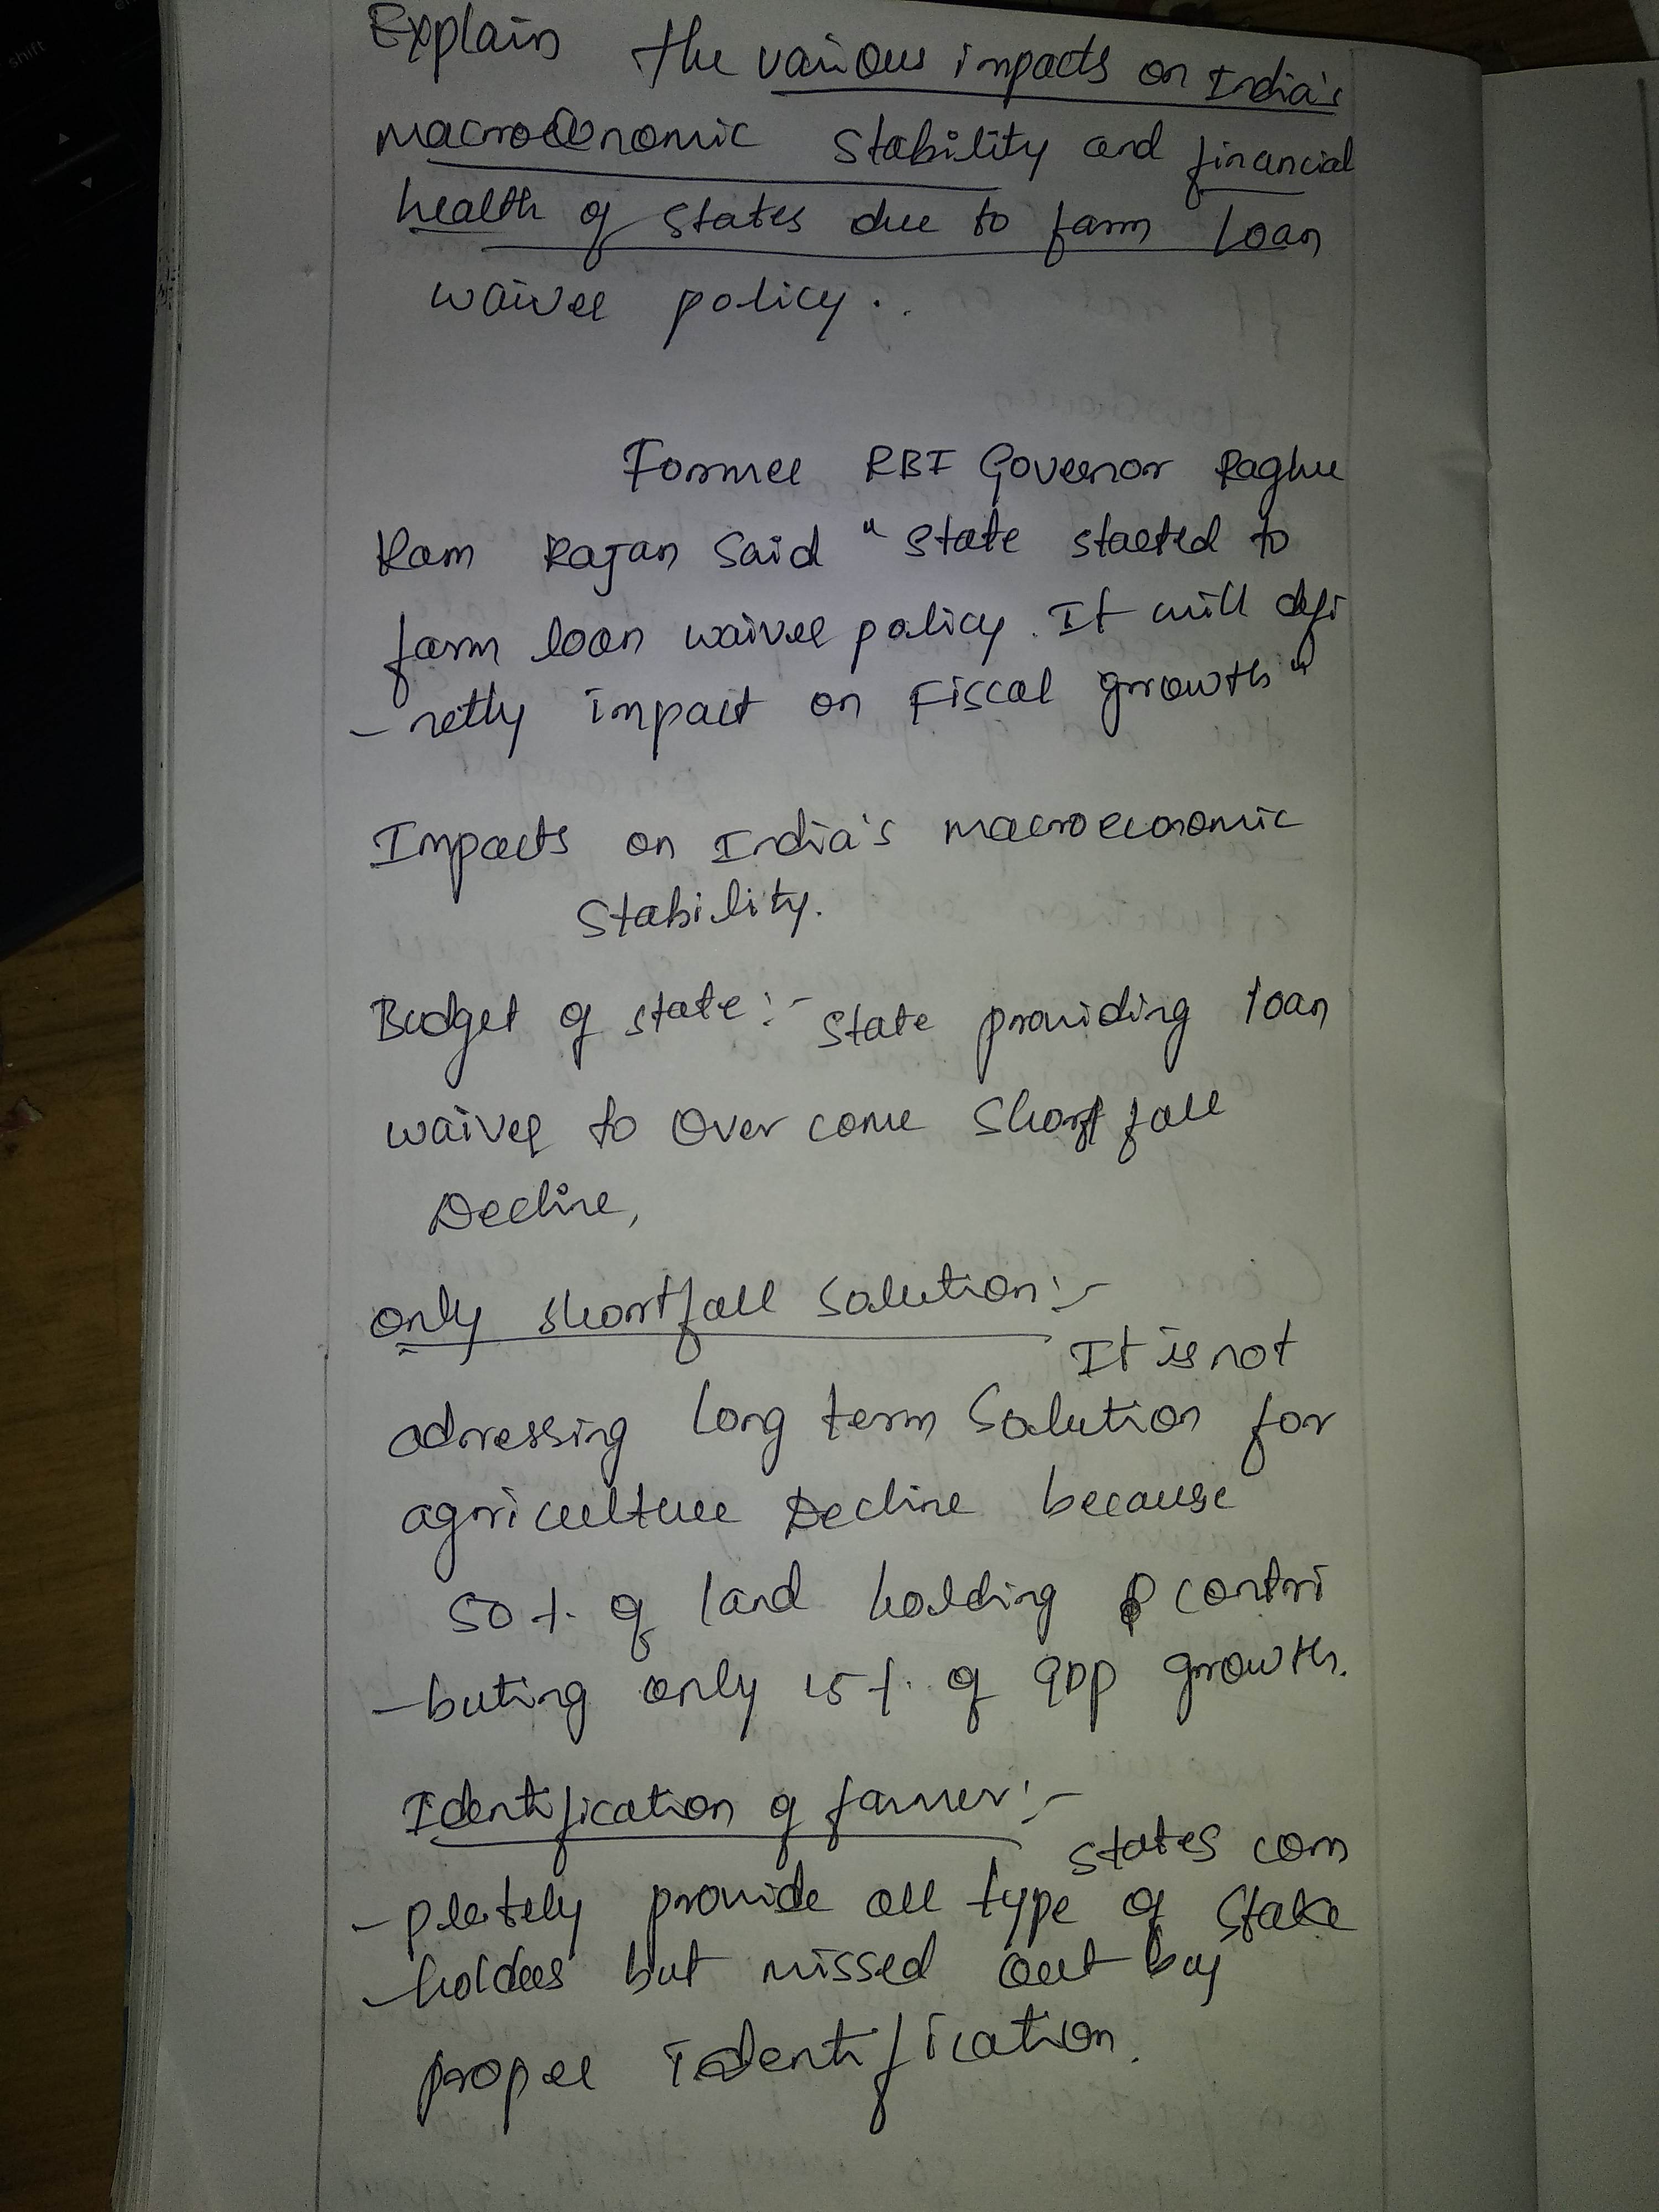 Explain the various impacts on India's
macroeconomic stability and financial
health of states due to farm loan
waiver policy.
Former RBI Governor Raghu
Ram Rajan said "State started to
farm loan waiver policy. It will defi
-netly impact on Fiscal growth"
Impacts on India's macroeconomic
Stability.
Budget of state:- State providing loan
waiver to over come Short fall
Decline,
only shortfall solution:-
It is not
adressing long term Solution for
agriculture Decline because
50 %. of land holding contri
-buting only 15 %. of GDP growth.
Identification of farmer:-
states com
-pletely provide all type of Stake
-holders but missed out by
proper identification.